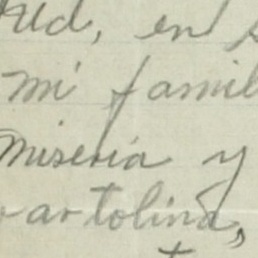 en
mi famil
miseria y
artolina,